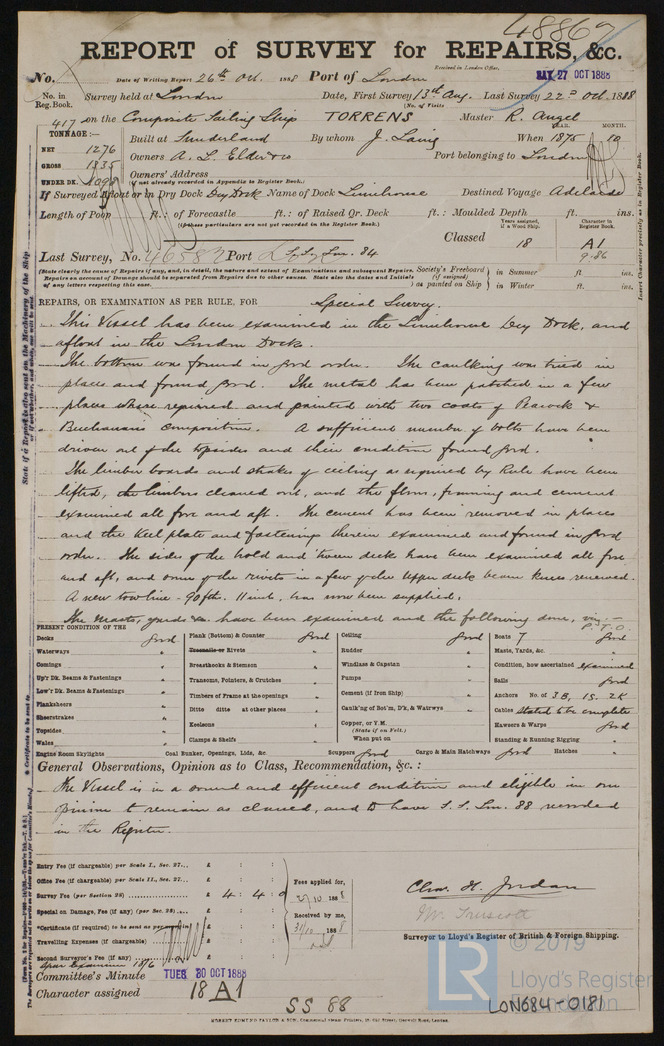 48867
REPORT of SURVEY for REPAIRS, &c.
Received in London Office,
No. Date of Writing Report 26th Oct. 1888 Port of London SAT 27 OCT 1888
No. in Reg. Book. Survey held at London Date, First Survey 13th Aug. Last Survey 22nd Oct. 1888
(No. of Visits
417 on the Composite Sailing Ship TORRENS Master R. Angel
TONNAGE:— YEAR. MONTH.
NET 1276 Built at Sunderland By whom J. Laing When 1875 10
GROSS 1335 Owners A. L. Elder & Co Port belonging to London
Owners' Address
UNDER DK. (if not already recorded in Appendix to Register Book.)
If Surveyed Afloat or in Dry Dock Dry Dock Name of Dock Limehouse Destined Voyage Adelaide
Length of Poop ft.: of Forecastle ft.: of Raised Qr. Deck ft.: Moulded Depth ft. ins.
(if these particulars are not yet recorded in the Register Book.)
Years assigned, if a Wood Ship. Character in Register Book.
Classed 18 A1
9.86
Last Survey, No. 46582 Port 84
(State clearly the cause of Repairs if any, and, in detail, the nature and extent of Examinations and subsequent Repairs.
Repairs on account of Damage should be separated from Repairs due to other causes. State also the dates and Initials of any letters respecting this case.
Society's Freeboard (if assigned) as painted on Ship } in Summer ft. ins.
in Winter ft. ins.
REPAIRS, OR EXAMINATION AS PER RULE, FOR Special Survey.
This Vessel has been examined in the Limehouse Dry Dock, and
afloat in the London Dock.
The bottom was found in good order. The caulking was tried in
places and found good. The metal has been patched in a few
places where required and painted with two coats of Peacock &
Buchanans composition. A sufficient number of bolts have been
driven out of the topsides and their condition found good.
The limber boards and strakes of ceiling as required by Rule have been
lifted, the limbers cleaned out, and the floors, framing and cement
examined all fore and aft. The cement has been removed in places
and the Keel plate and fastenings therein examined and found in good
order. The sides of the hold and 'tween decks have been examined all fore
and aft, and some of the rivets in a few of the Upper deck beam knees renewed.
A new towline - 90 fth. 11 inch, has now been supplied.
The Masts, yards &c. have been examined and the following done, viz:-
P.T.O.
PRESENT CONDITION OF THE
Decks good Plank (Bottom) & Counter good Ceiling good Boats 7 good
Waterways " Treenails or Rivets " Rudder " Masts, Yards, &c. "
Comings " Breasthooks & Stemson " Windlass & Capstan " Condition, how ascertained examined
Up'r Dk. Beams & Fastenings " Transoms, Pointers, & Crutches " Pumps " Sails good
Low'r Dk. Beams & Fastenings " Timbers of Frame at the openings " Cement (if Iron Ship) " Anchors No. of 3B, 1S, 2K
Planksheers " Ditto ditto at other places " Caulk'ng of Bot'm, D'k, & Watrwys " Cables stated to be complete
Sheerstrakes " Keelsons " Copper, or Y.M. (State if on Felt.) " Hawsers & Warps good
Topsides " Clamps & Shelfs " When put on Standing & Running Rigging "
Wales "
Engine Room Skylights Coal Bunker, Openings, Lids, &c. Scuppers good Cargo & Main Hatchways good Hatches "
General Observations, Opinion as to Class, Recommendation, &c.:
The Vessel is in a sound and efficient condition and eligible in our
opinion to remain as classed, and to have S.S. Lon. 88 recorded
in the Register.
Entry Fee (if chargeable) per Scale I., Sec. 27... £ : :
Office Fee (if chargeable) per Scale II., Sec. 27... £ : :
Survey Fee (per Section 29) £ 4 : 4 : 0
Special on Damage, Fee (if any) (per Sec. 28) £ : :
*Certificate (if required) to be sent as per £ : :
Travelling Expenses (if chargeable) £ : :
Second Surveyor's Fee (if any) £ : :
Fees applied for, 27/10 1888
Received by me, 31/10 1888
Chas. H. Jordan
W. Truscott
Surveyor to Lloyd's Register of British & Foreign Shipping.
Committee's Minute TUES 30 OCT 1888
Character assigned 18 A1
SS 88
LON684-0181
© 2019
LR
Lloyd's Register
Foundation
State if a Report is also sent on the Machinery of the Ship
Insert Character precisely as in Register Book.